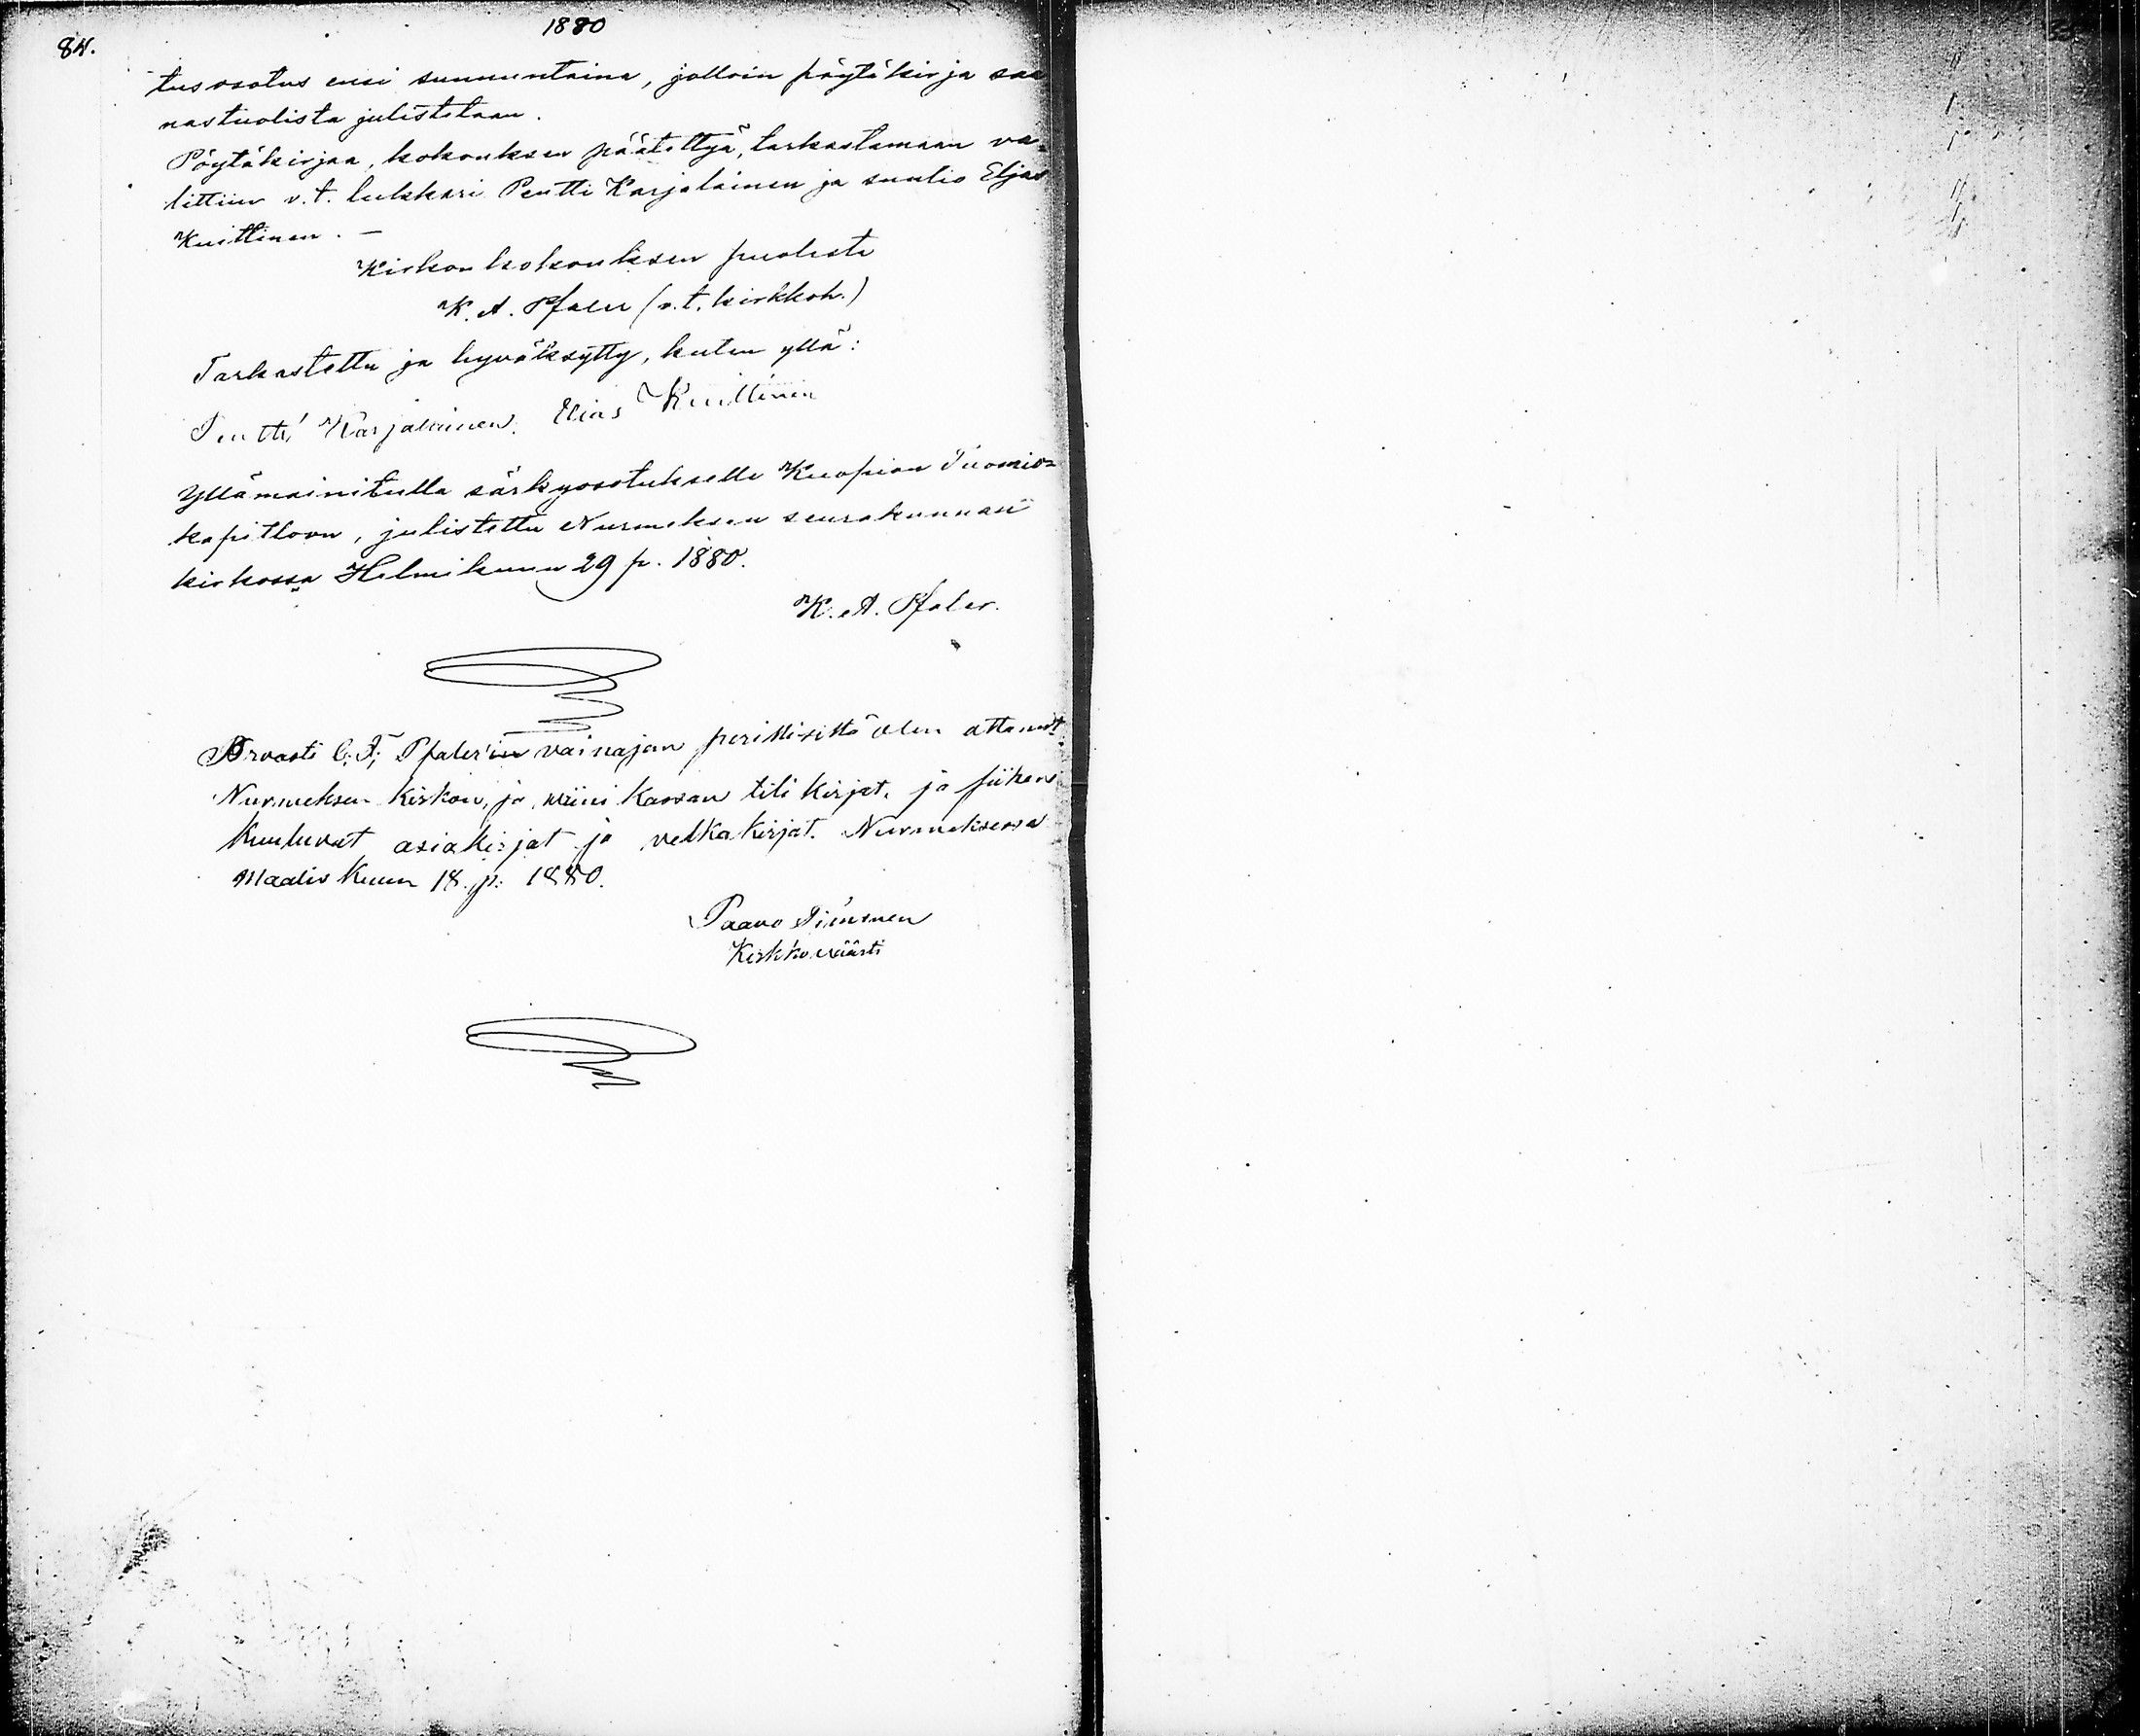 1880
84.
tusosotus ensi sunnuntaina, jolloin pöytäkirja saa
nastuolista julistetaan.
Pöytäkirjaa, kokouksen päätettyä, tarkastamaan va=
littiin v.t. lukkari Pentti Karjalainen ja suutio Eljas
Kuittinen. —
Kirkonkokouksen puolesta
K. A. Pfaler (v.t. kirkkoh.)
Tarkastettu ja hyväksytty, kuten yllä:
Pentti Karjalainen. Elias Kuittinen
Yllämainitulla särkyosotukselle Kuopion Tuomio=
kapitloon, julistettu Nurmeksen seurakunnan
kirkossa Helmikuun 29 p. 1880.
K. A. Pfaler.
Prvasti C. F; Pfaler'in vainajan perillisiltä olen ottanut
Nurmeksen Kirkon, ja wiini Kassan tili kirjat, ja siihen
kuuluvat asiakirjat ja velka kirjat. Nurmeksessa
Maalis Kuun 18. p: 1880.
Paavo
Kirkkowäärti